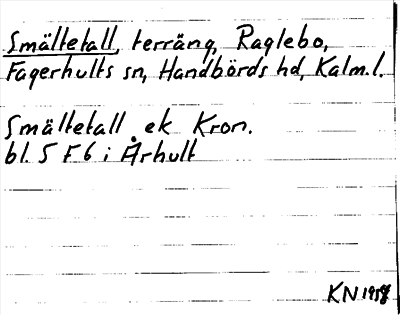 Smältetall, terräng, Raglebo,
Fagerhults sn, Handbörds hd, Kalm. l.
Smältetall ek Kron.
bl. 5 F 6 i Århult
KN